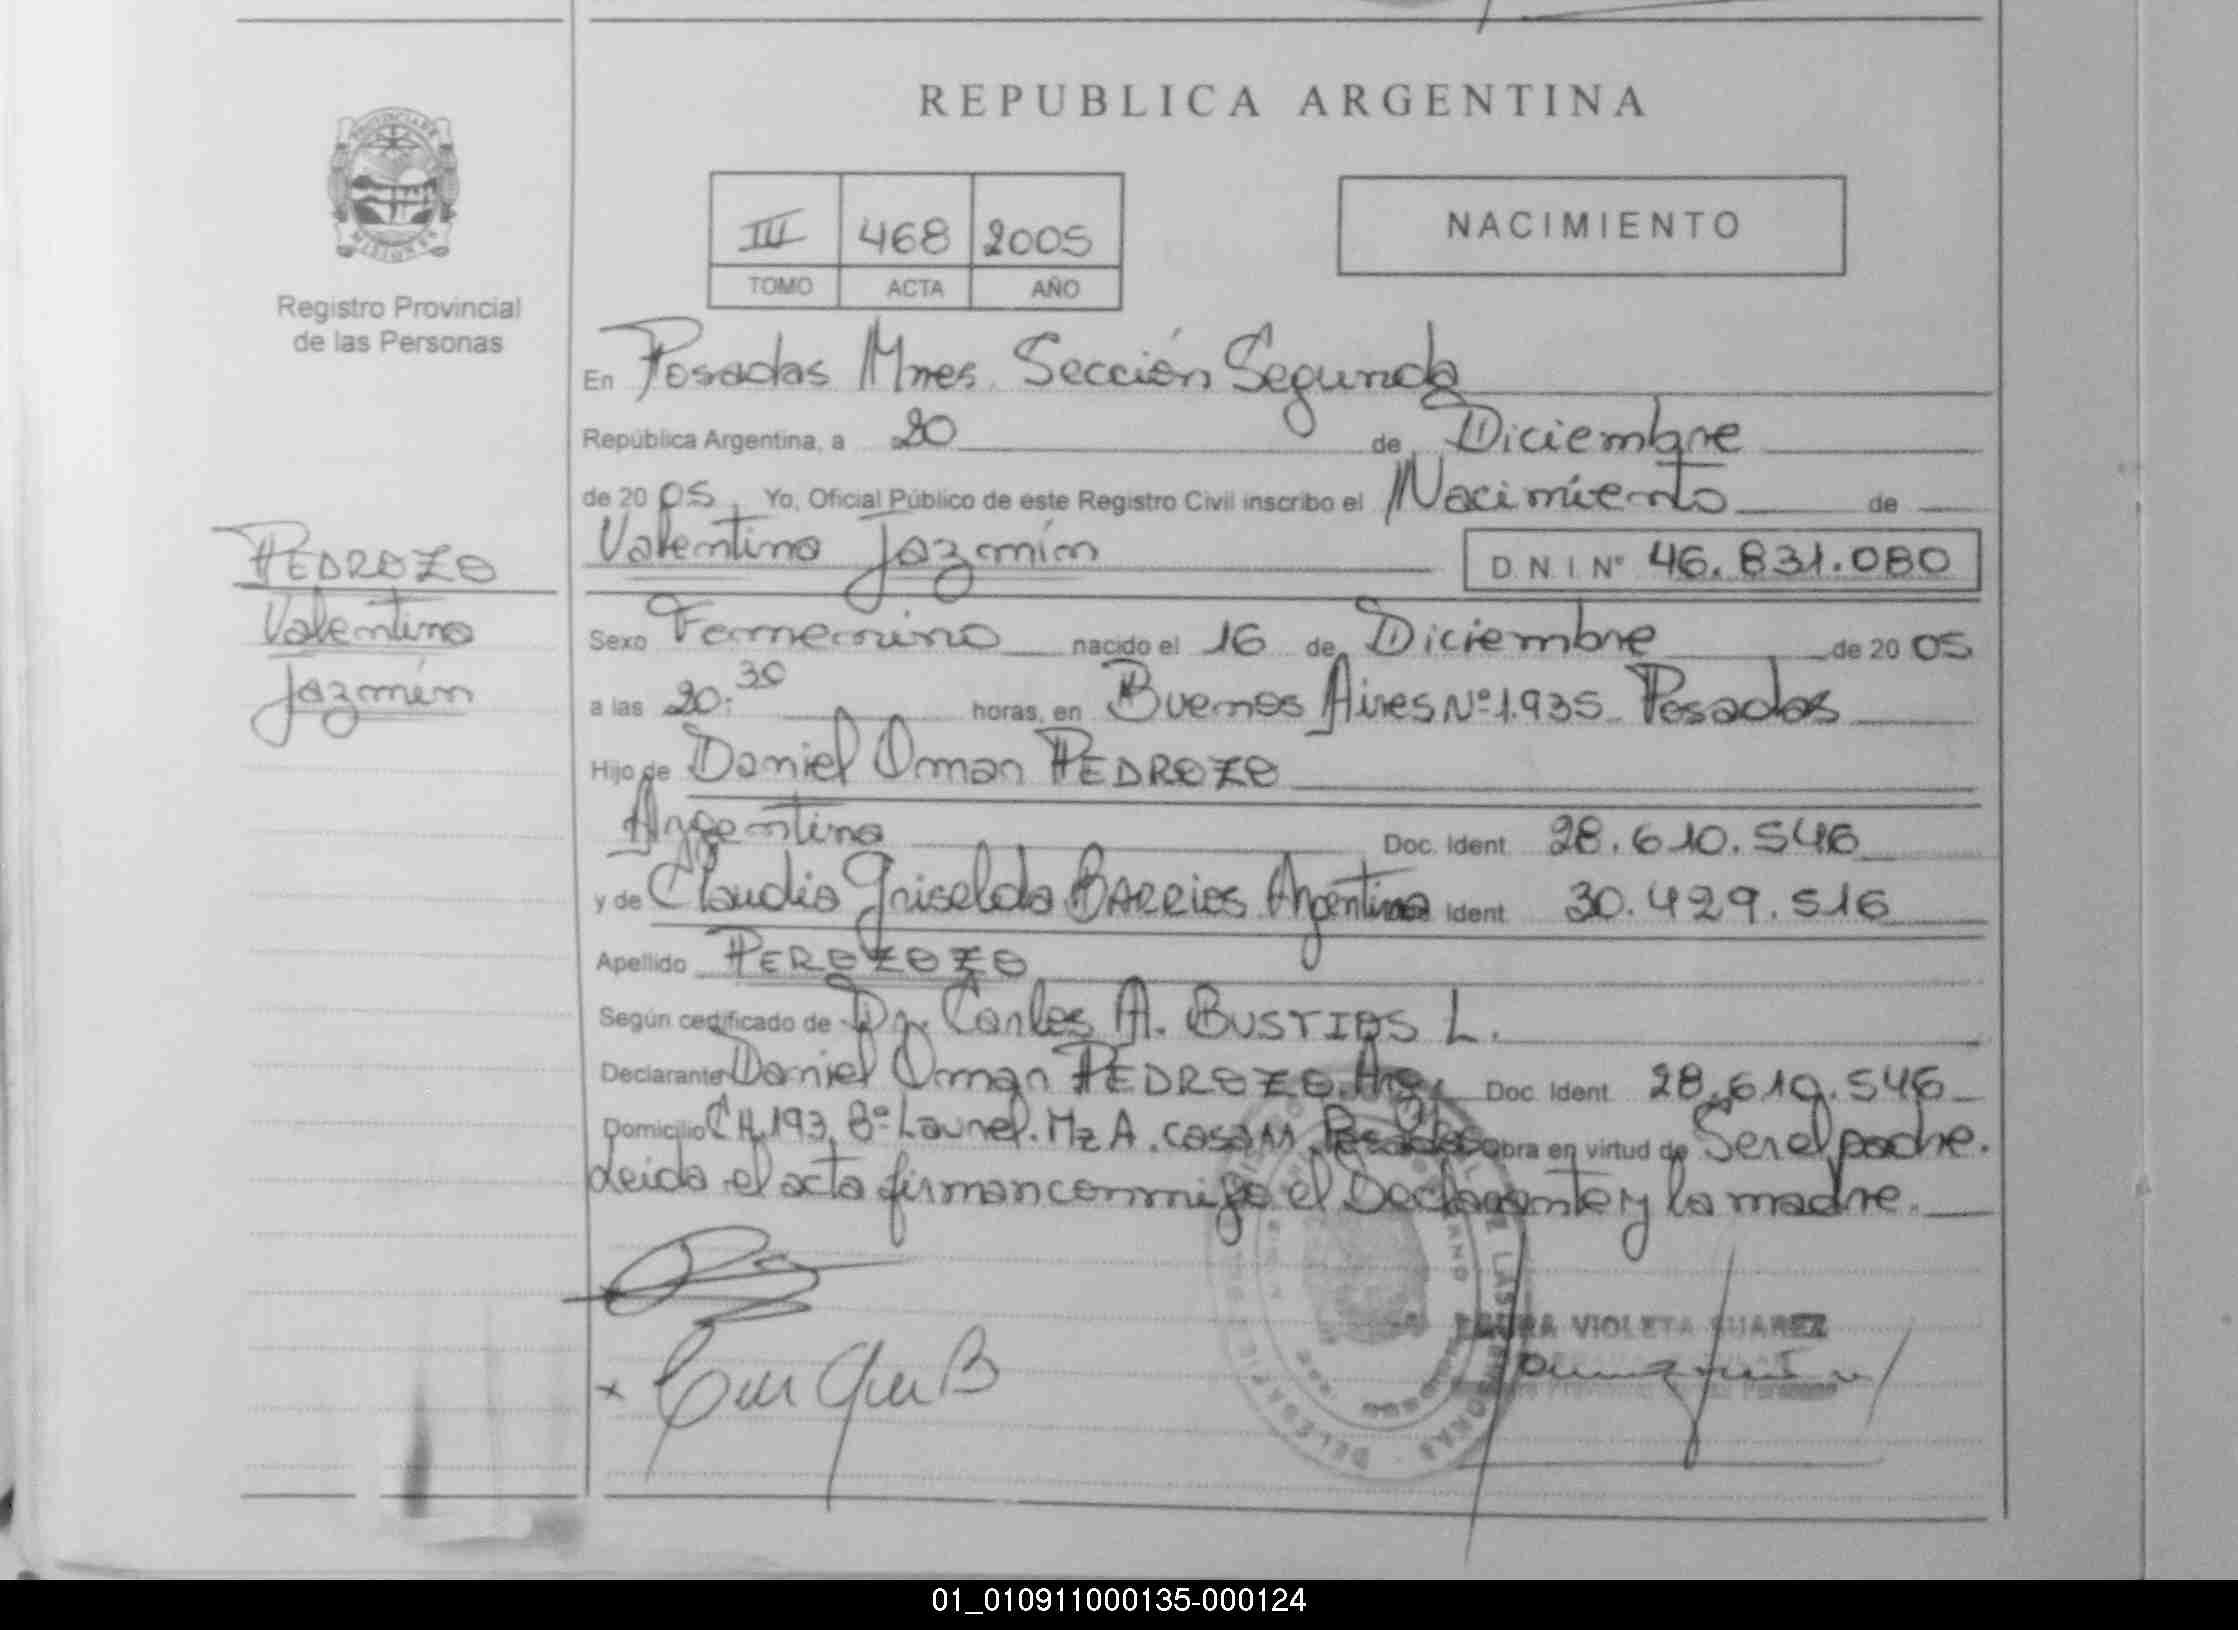 REPUBLICA ARGENTINA
PROVINCIA DE
MISIONES
Registro Provincial
de las Personas
III 468 2005
TOMO ACTA AÑO
NACIMIENTO
En Posadas Mnes. Sección Segunda
República Argentina, a 20 de Diciembre
de 2005 Yo, Oficial Público de este Registro Civil inscribo el Nacimiento de
Valentina Jazmín D.N.I Nº 46.831.080
PEDROZO
Valentina
Jazmín
Sexo Femenino nacido el 16 de Diciembre de 2005
a las 20:30 horas, en Buenos Aires Nº 1.935 Posadas
Hijo de Daniel Omar PEDROZO
Argentino Doc. Ident 28.610.546
y de Claudia Griselda BARRIOS Argentina Ident 30.429.516
Apellido PEROZOZO
Según certificado de Dr. Carlos A. BUSTIOS L.
Declarante Daniel Omar PEDROZO. Arg. Doc. Ident 28.610.546
Domicilio CH.193. Bº Laurel. Mz A. casa 11 Posadas obra en virtud de Ser el padre.
Leida el acta firman conmigo el Declarante y la madre.
LAURA VIOLETA SUAREZ
01_010911000135-000124